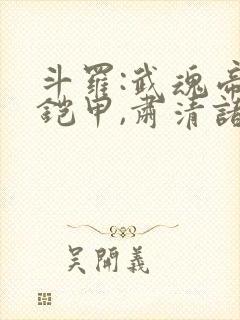 斗羅:武魂帝
鎧甲,肅清諸
吴開義